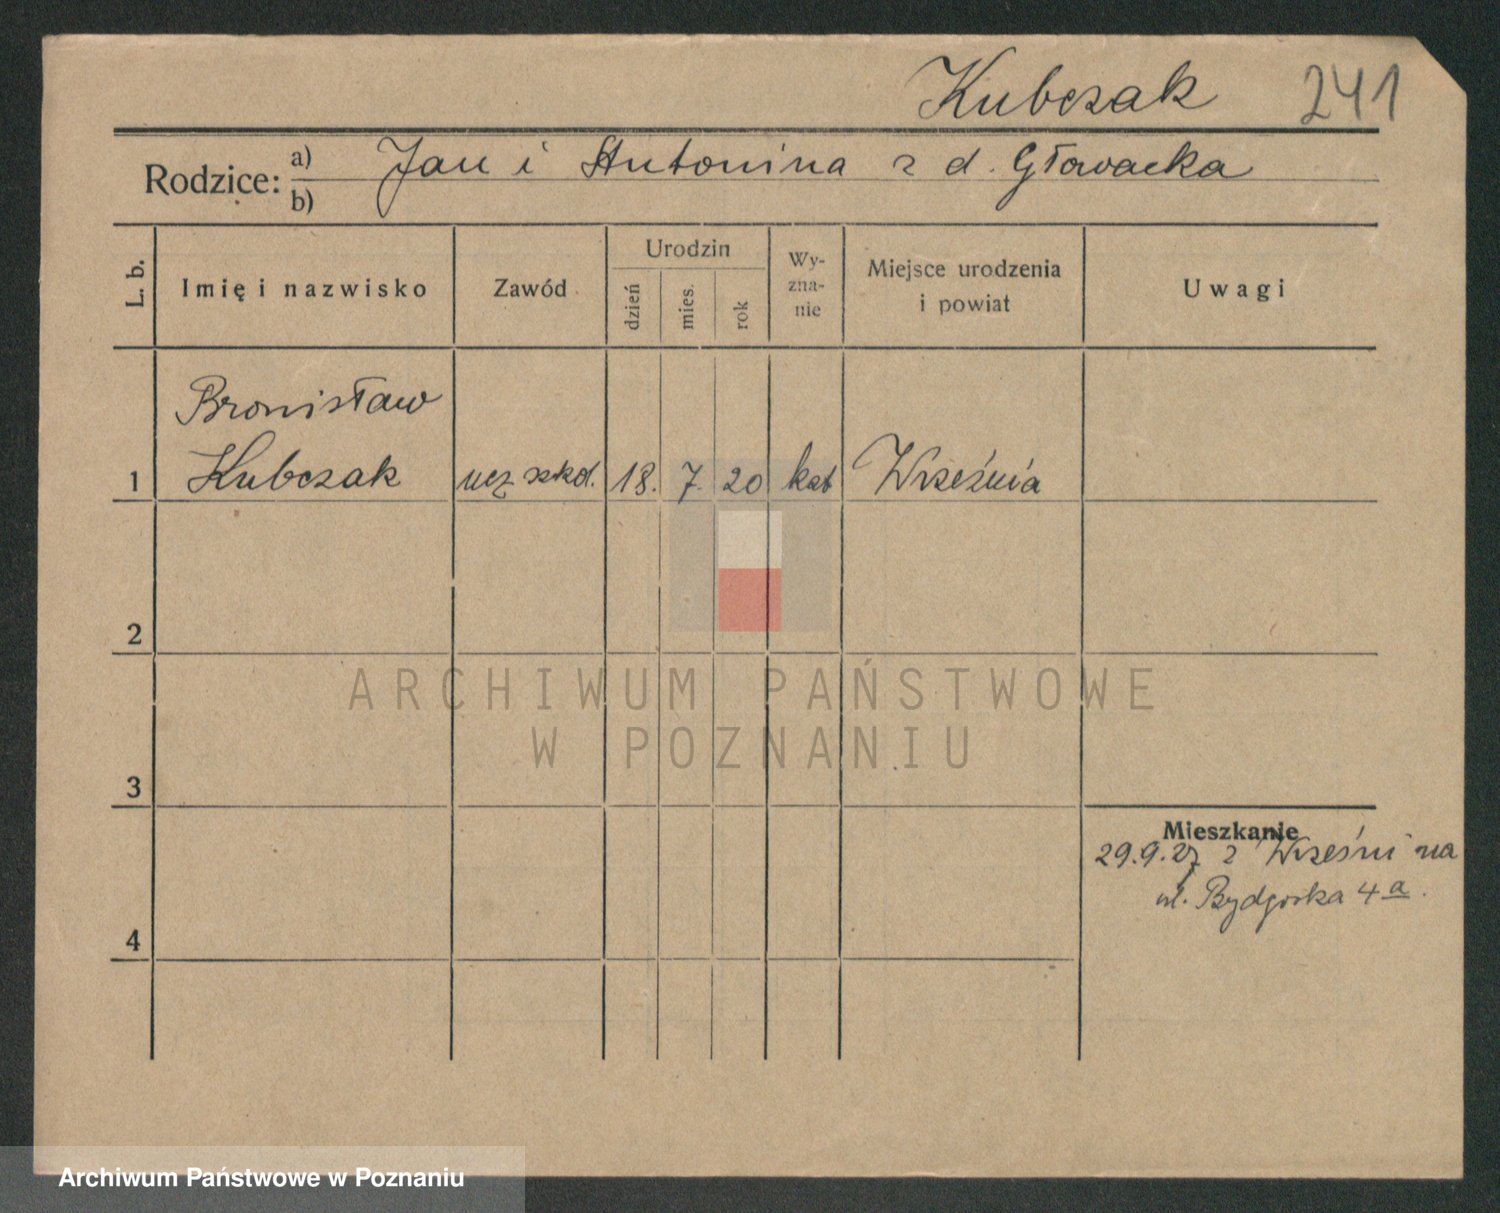 Kubczak 241
Rodzice: a) Jan i Antonina z d. Głowacka
b)
L. b.
Imię i nazwisko
Zawód
Urodzin
dzień
mies.
rok
Wy-
zna-
nie
Miejsce urodzenia
i powiat
Uwagi
Bronisław
1 Kubczak ucz. szkol. 18. 7. 20 kat Września
2
ARCHIWUM PAŃSTWOWE
W POZNANIU
3
Mieszkanie
29.9.27 z Wrześni na
ul. Bydgoska 4a.
4
Archiwum Państwowe w Poznaniu